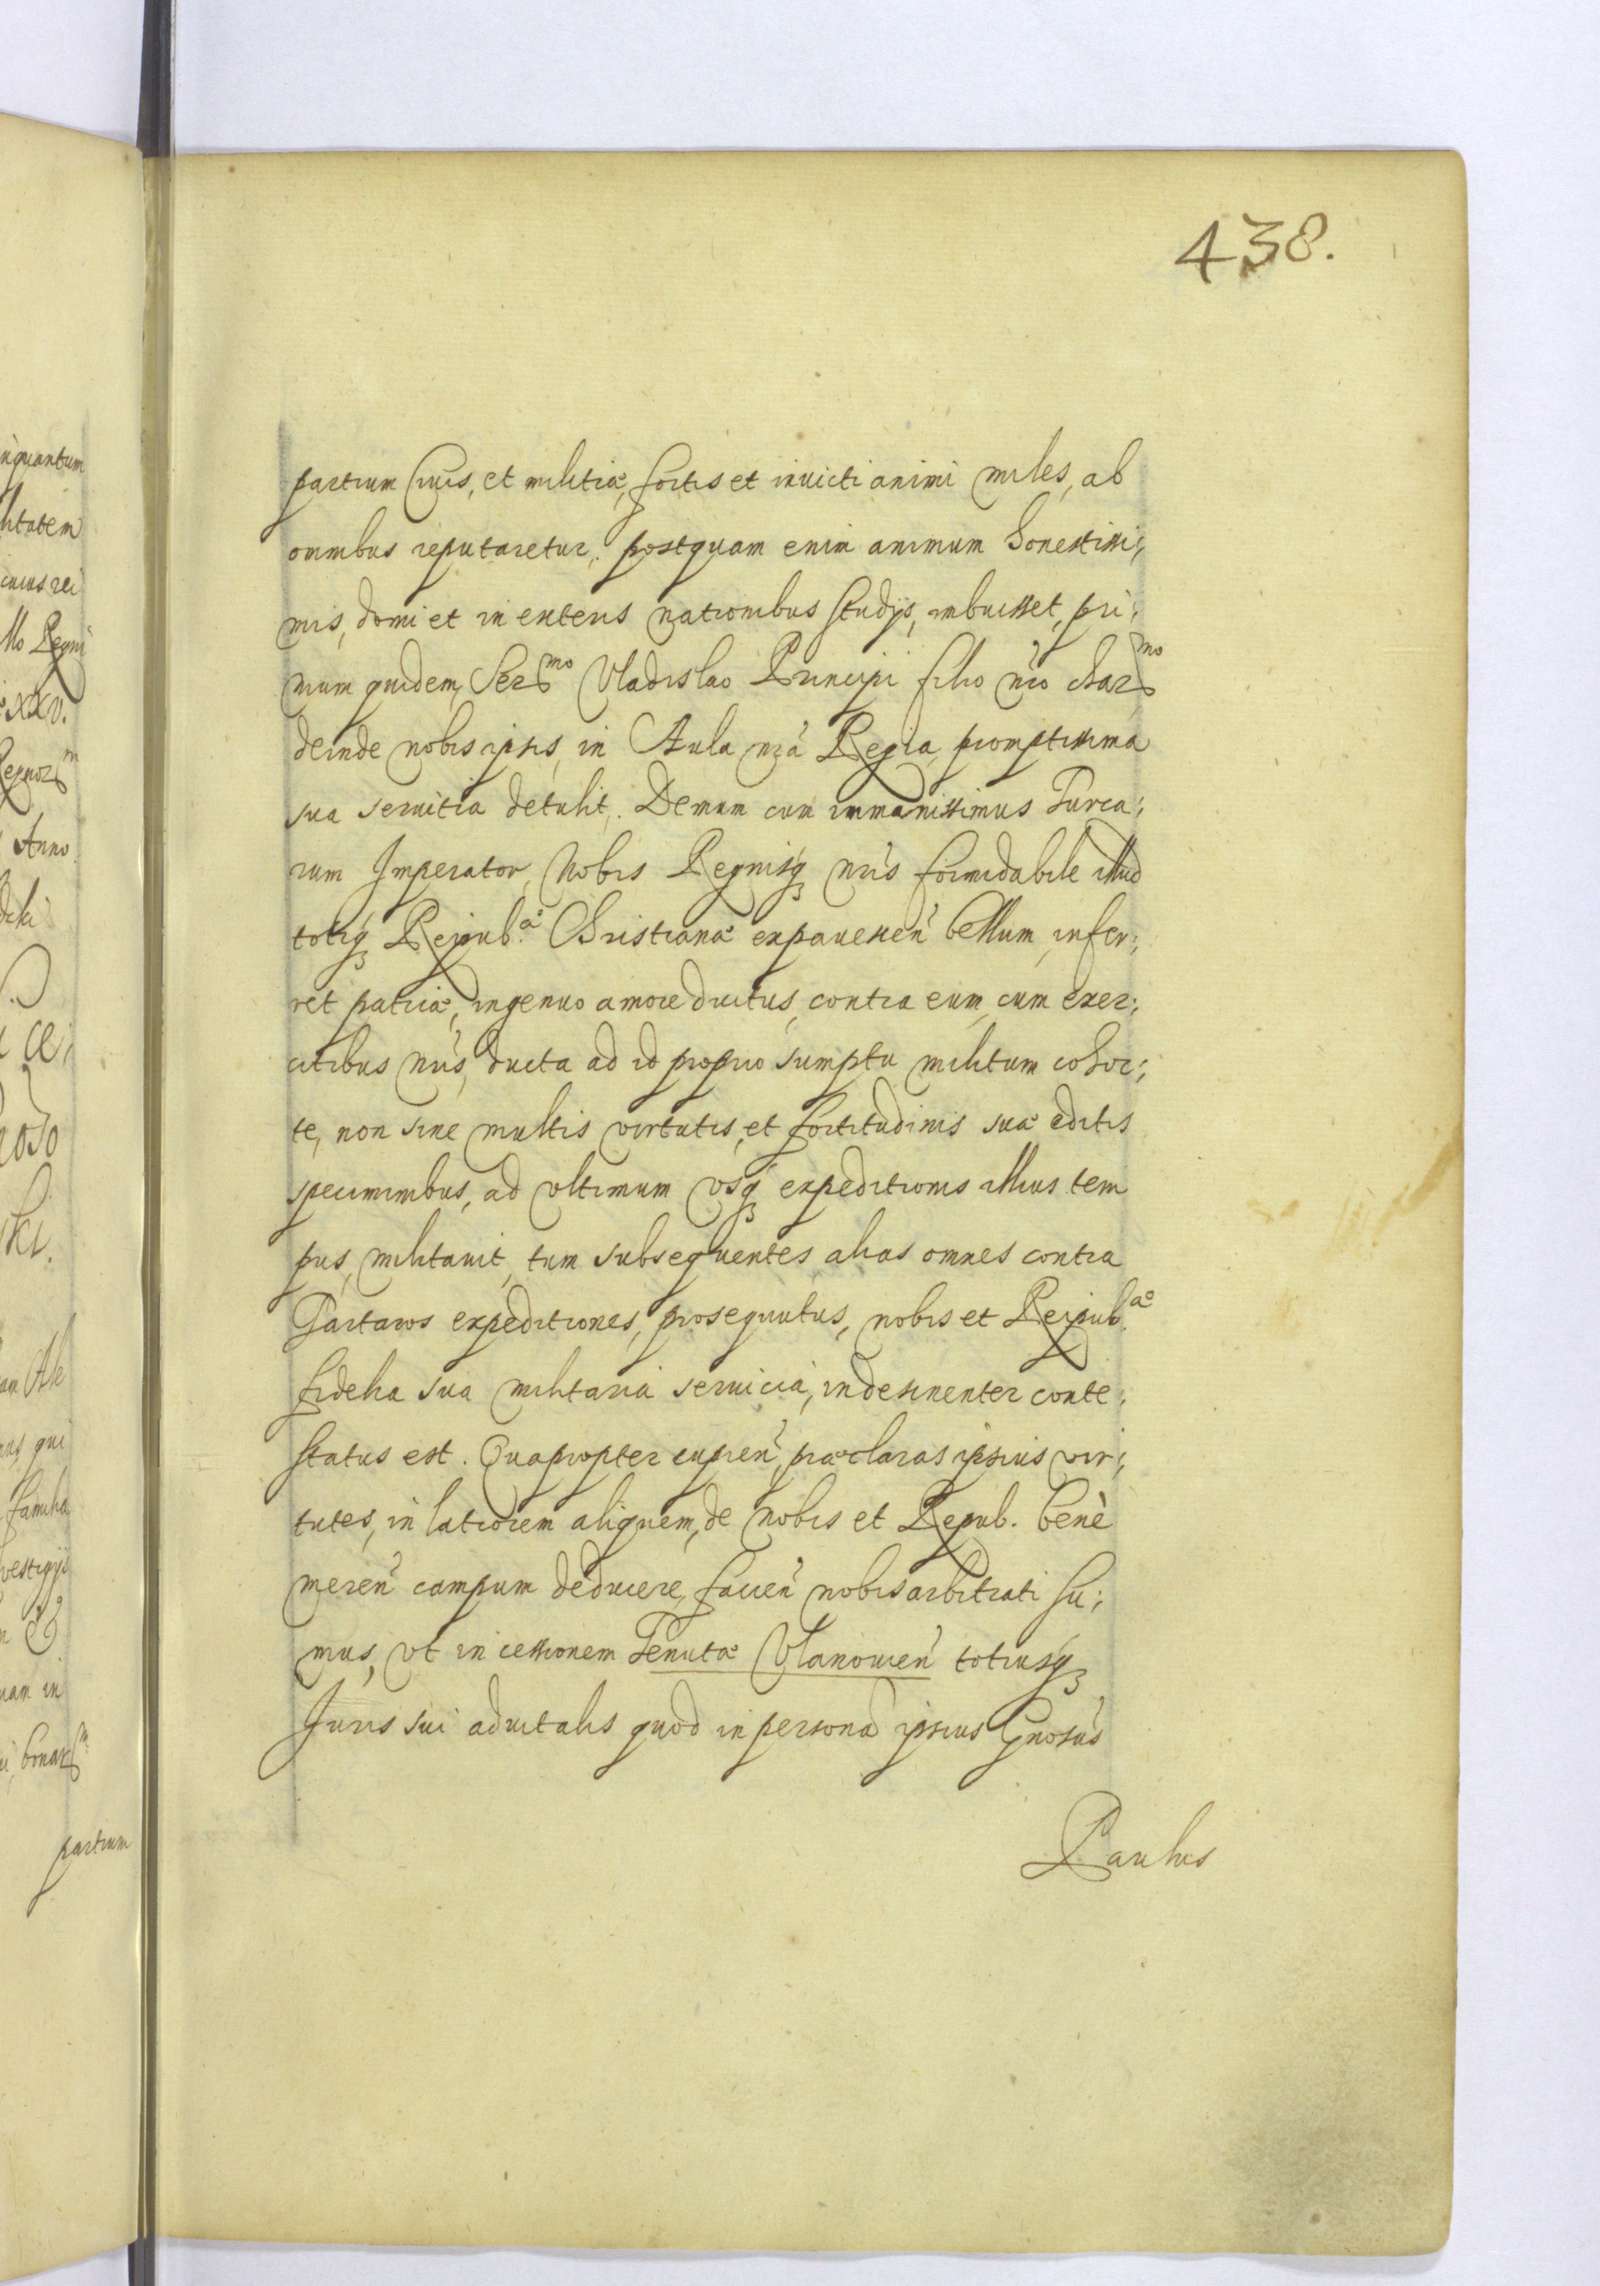 438.
partium Ciuis, et militiæ, fortis et inuicti animi miles, ab
omnibus reputaretur, postquam enim animum honestissi;
mis, domi et in exteris nationibus studijs, imbuisset, pri;
mum quidem, Ser^mo Vladislao Principi filio nr̃o char^mo
deinde nobis ipsis, in Aula nr̃a Regia, promptissima
sua seruitia detulit. Demum cum immanissimus Turca;
rum Imperator, Nobis Regnisq́ꝫ nr̃is formidabile illud
totiq́ꝫ Reipub.^æ Christianæ expauescen̄ bellum, infer;
ret patriæ, ingenuo amore ductus, contra eum, cum exer;
citibus nr̃is, ducta ad id proprio sumptu militum cohor;
te, non sine multis virtutis, et fortitudinis suæ editis
speciminibus, ad vltimum vsq́ꝫ expeditionis illius tem
pus, militauit, tum subsequentes alias omnes contra
Tartaros expeditiones, prosequutus, nobis et Reipub.^æ
fidelia sua militaria seruicia, indesinenter conte;
status est. Quapropter cupien̄, præclaras ipsius vir;
tutes, in latiorem aliquem, de nobis et Repub. benè
meren̄ campum deducere, facien̄ nobis arbitrati su;
mus, vt in cessionem Tenutæ Vlanouien̄ totiusq́ꝫ
Juris sui aduitalis quod in persona ipsius Gnosus
Paulus
nquantum
litatem
cuius rei
llo Regni
XXV.
Regnor^m
Anno
ski.
am Ale
us, qui
familia
vestigijs
uam in
bonar^m
partium